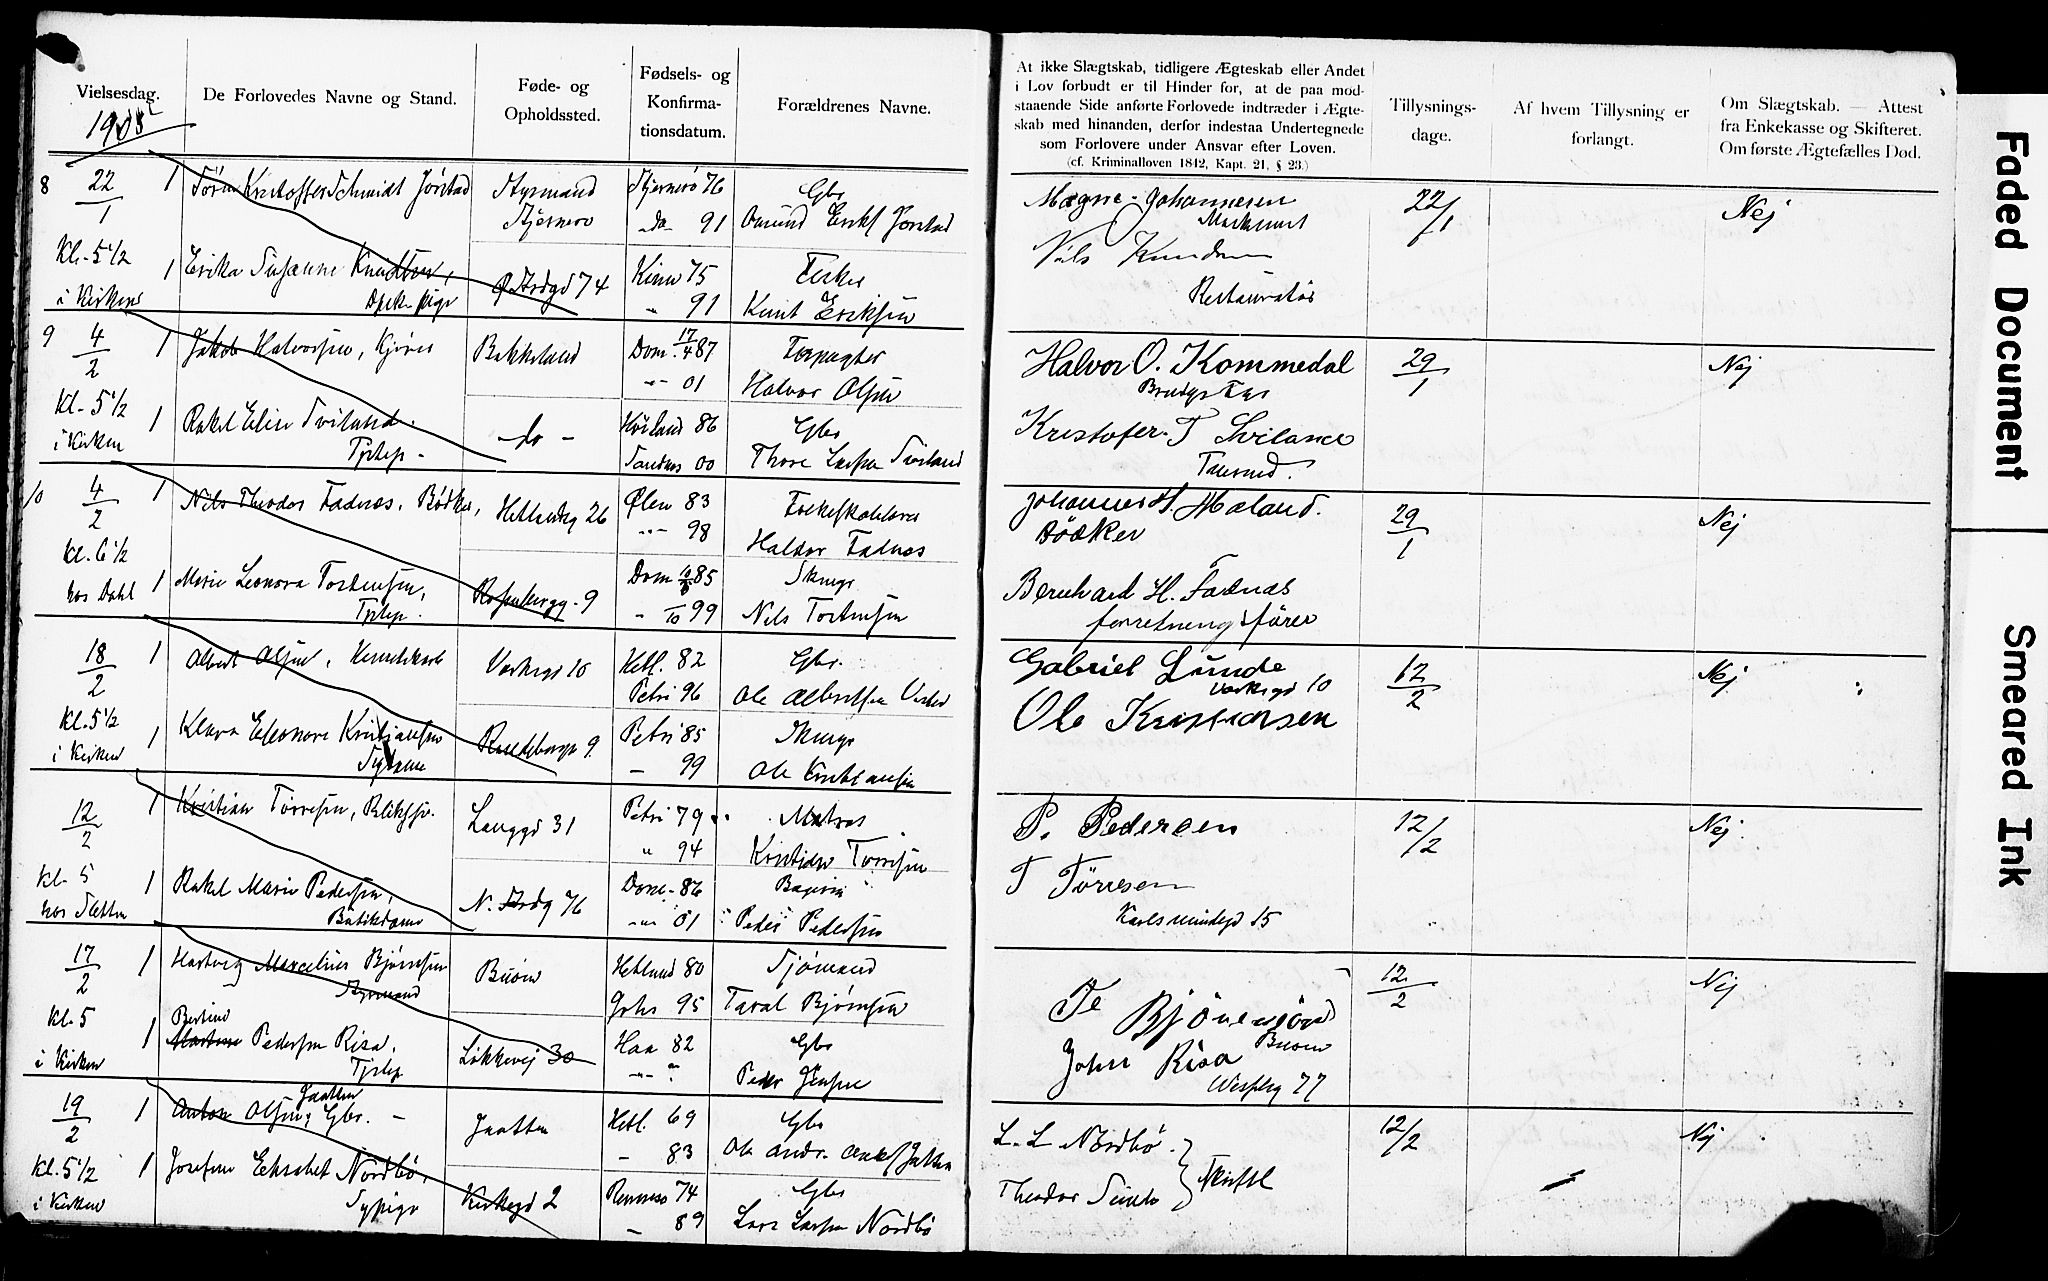 Vielsesdag.
1905
De Forlovedes Navne og Stand.
Føde- og
Opholdssted.
Fødsels- og
Konfirma-
tionsdatum.
Forældrenes Navne.
At ikke Slægtskab, tidligere Ægteskab eller Andet
i Lov forbudt er til Hinder for, at de paa mod-
staaende Side anførte Forlovede indtræder i Ægte-
skab med hinanden, derfor indestaa Undertegnede
som Forlovere under Ansvar efter Loven.
(cf. Kriminalloven 1842, Kapt. 21, § 23.)
Tillysnings-
dage.
Af hvem Tillysning er
forlangt.
Om Slægtskab. — Attest
fra Enkekasse og Skifteret.
Om første Ægtefælles Død.
8 22/1 1 Kristoffer Schmidt Jørstad
Styrmand
Stjernerø
Stjernerø 76
do 91
Gbr
Omund Eriks Jørstad
Magne Johannesen
22/1
Nej
Kl. 5 1/2
i Kirken
1 Erika Susanne Knudtsen,
Ø Strdgd 74
Kinn 75
" 91
Fisker
Knut Eriksen
Nils Knudsen
Restauratør
9 4/2 1 Jakob Halvorsen, Kjører
Bakkeland
Dom. 17/4 87
-"- 01
Forpagter
Halvor Olsen
Halvor O. Kommedal
Brudgs Far
29/1
Nej
Kl. 5 1/2
i Kirken
1 Rakel Elise Sviland.
Tjstep.
- do -
Høiland 86
Sandnes 00
Gbr
Thore Larsen Sviland
Kristofer T Sviland
10 4/2 1 Nils Theodor Fadnes, Bødker,
Hetlandsg 26
Ølen 83
-"- 98
Folkeskolelærer
Haldor Fadnes
Johannes H. Maland.
Bødker
29/1
Nej
Kl. 6 1/2
hos Dahl
1 Marie Leonora Torstensen,
Tjstep.
Rosenbergg. 9
Dom 85
99
Skomgr
Nils Torstensen
Bernhard H. Fadnes
forretningsfører
18/2 1 Albert Olsen,
Verksgd 10
Hetl. 82
Petri 96
Gbr.
Ole Albertsen
Gabriel Lunde
Verksgd 10
12/2
Nej
Kl. 5 1/2
i Kirken
1 Klara Eleonore Kristiansen
Sydame
9
Petri 85
— 99
Skomgr
Ole Kristiansen
Ole Kristiansen
12/2 1 Kristian Tørresen, Blikksl.
Langgd 31
Petri 79
" 94
Matros
Kristian Tørresen
P. Pedersen
12/2
Nej
Kl. 5
hos Sletten
1 Rakel Marie Pedersen,
Butikdame
N. Strdg 76
Dom. 86
-"- 01
Peder Pedersen
T Tørresen
Karlsmindegd 15
17/2 1 Hartvig Marcelius Bjørnsen
Styrmand
Buøen
Hetland 80
Grhs 95
Sjømand
Taral Bjørnsen
Te Bjørnsen
Buøen
12/2
Nej
Kl. 5
i Kirken
1 Bertine
Pedersen Risa,
Tjstep
Løkkevej 30
Haa 82
-"- ?
Gbr
Peder Jensen
John Risa
77
19/2 1 Anton Olsen, Jaatten
Gbr. -
Jaatten
Hetl. 69
— 83
Gbr
Ole Andr.
L. L Nordbø.
12/2
Nej
Kl. 5 1/2
i Kirken
1 Josefine Elisabet Nordbø,
Sypige
Kirkegd 2
Rennesø 74
— 89
Gbr
Lars Larsen Nordbø
Theodor
Faded Document
Smeared Ink